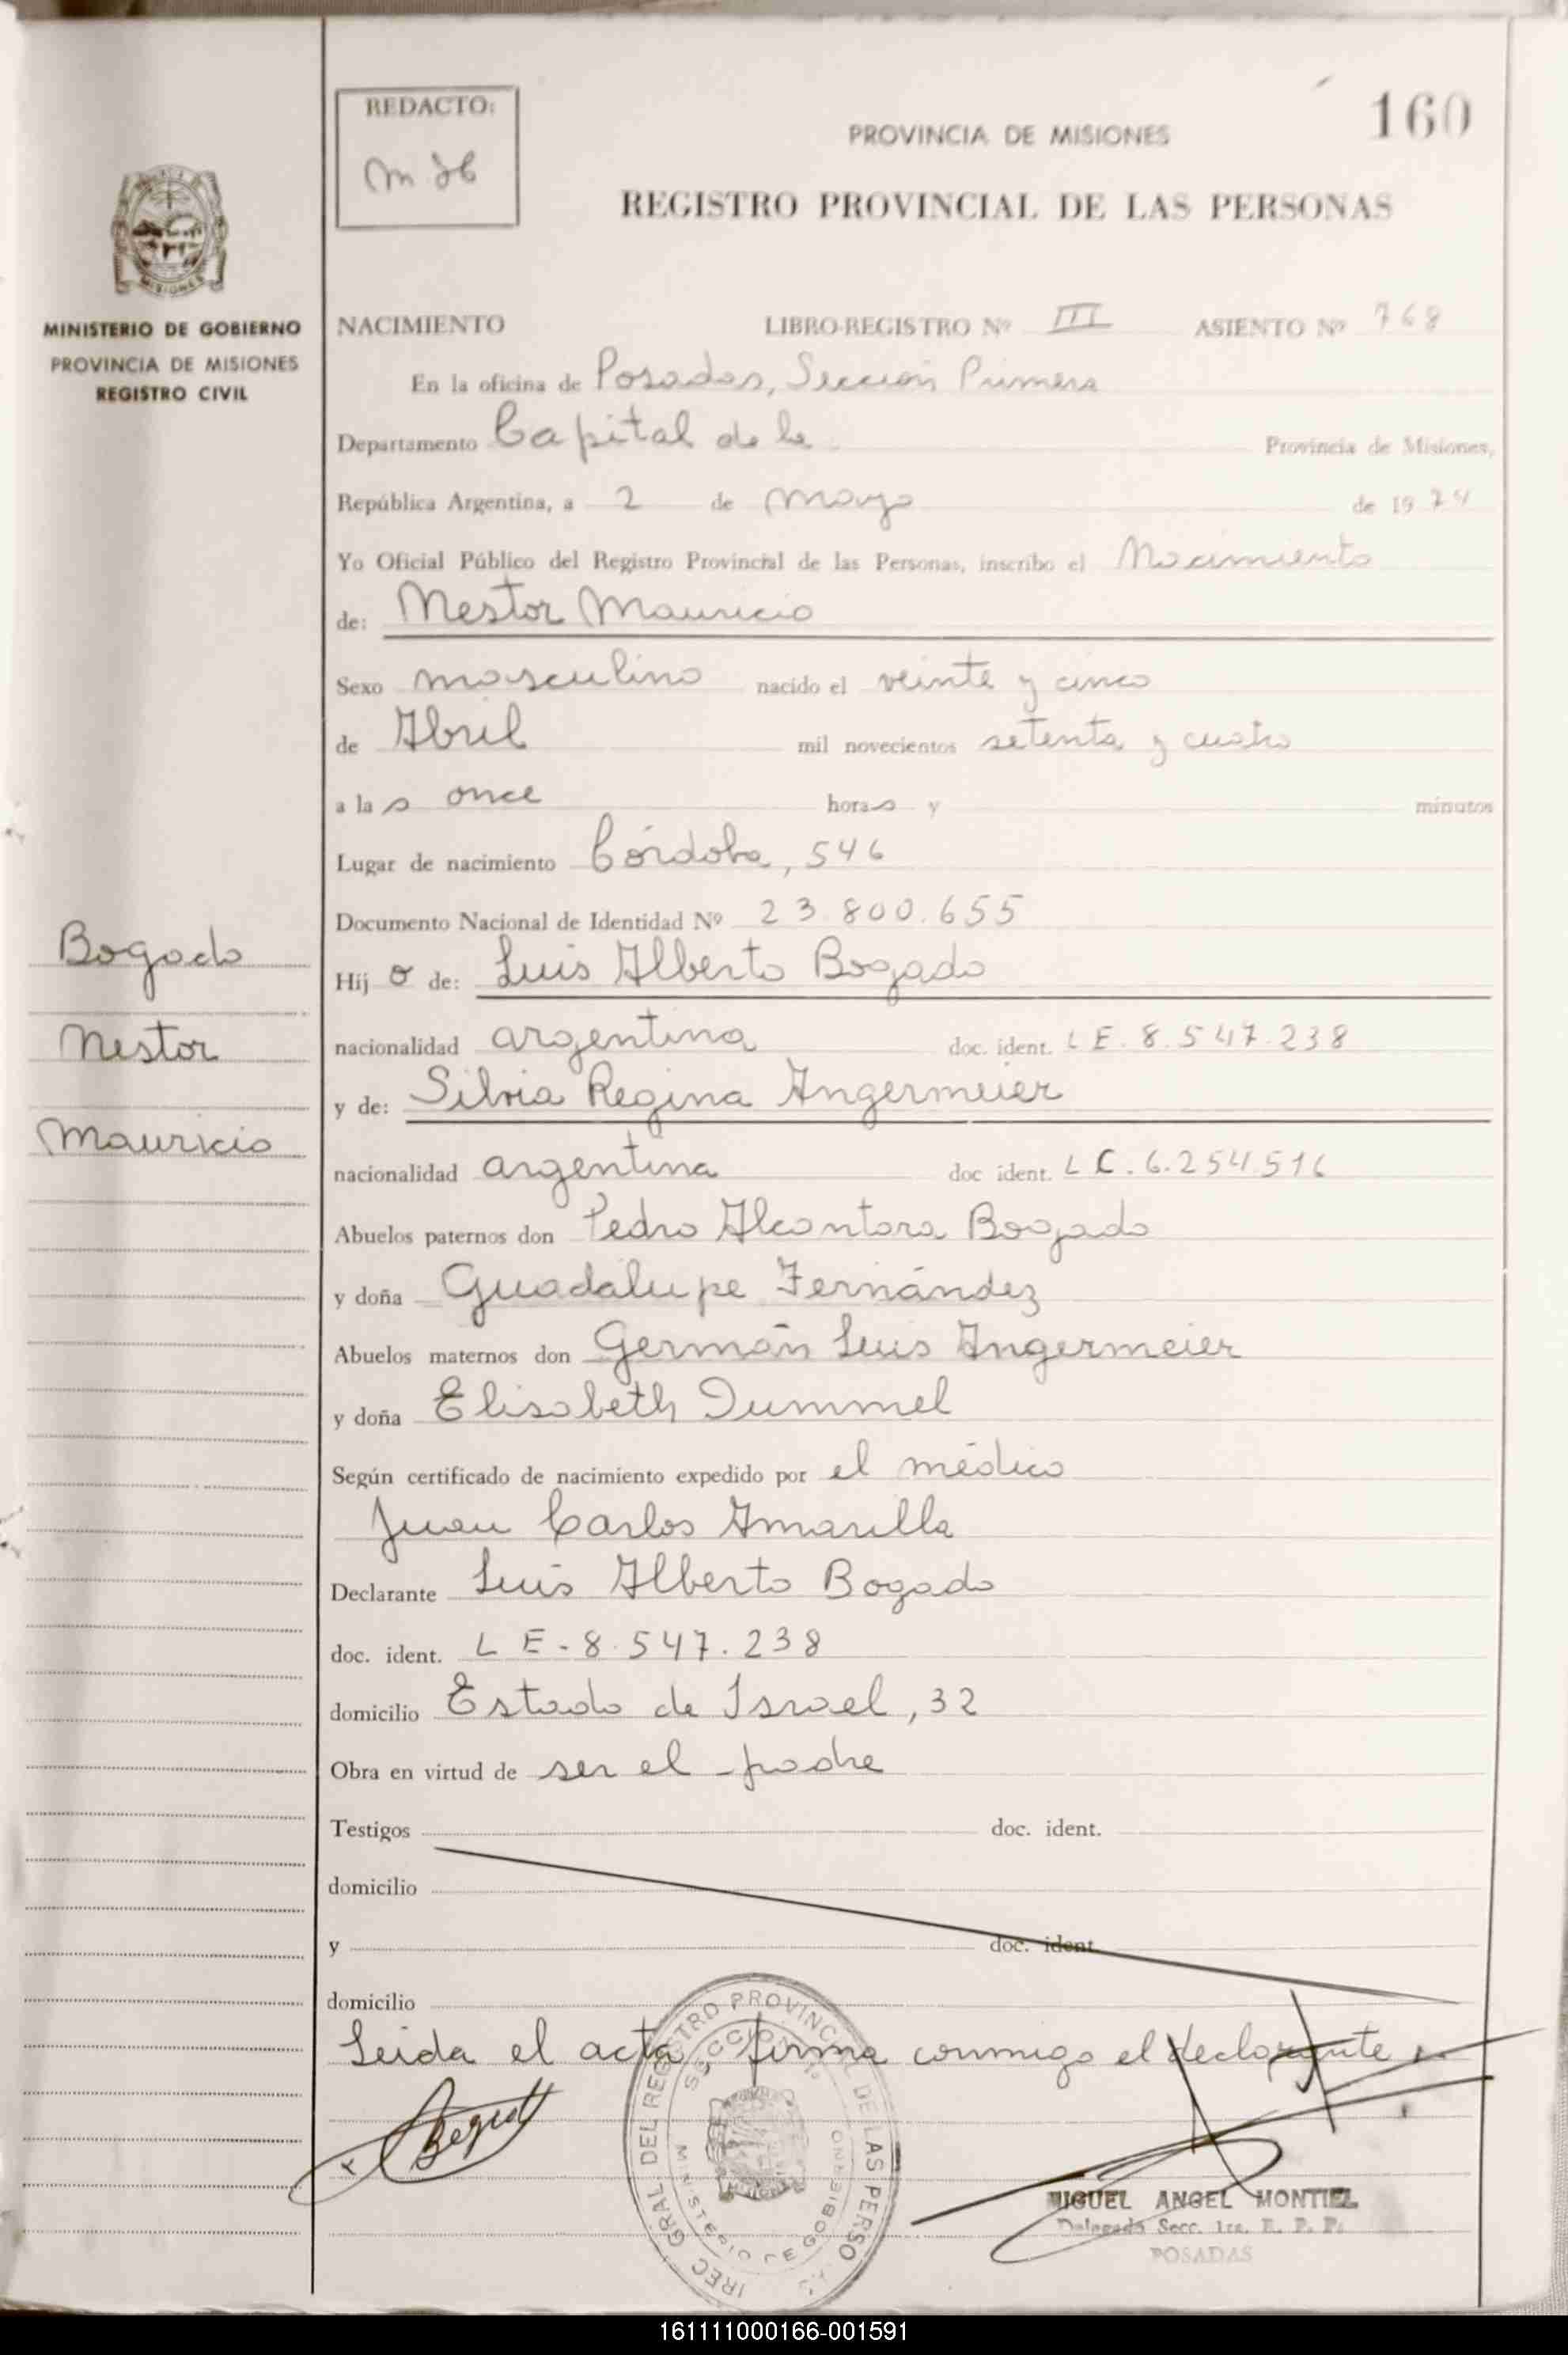 REDACTO:
160
PROVINCIA DE MISIONES
REGISTRO PROVINCIAL DE LAS PERSONAS
MISIONES
MINISTERIO DE GOBIERNO
PROVINCIA DE MISIONES
REGISTRO CIVIL
NACIMIENTO LIBRO-REGISTRO Nº III ASIENTO Nº 768
En la oficina de Posadas, Sección Primera
Departamento Capital de la Provincia de Misiones,
República Argentina, a 2 de mayo de 1974
Yo Oficial Público del Registro Provincial de las Personas, inscribo el Nacimiento
de: Nestor Mauricio
Sexo masculino nacido el veinte y cinco
de Abril mil novecientos setenta y cuatro
a las once horas y minutos
Lugar de nacimiento Córdoba, 546
Documento Nacional de Identidad Nº 23.800.655
Bogado
Nestor
Mauricio
Hijo de: Luis Alberto Bogado
nacionalidad argentina doc. ident. LE. 8.547.238
y de: Silvia Regina Angermeier
nacionalidad argentina doc ident. LC. 6.254.516
Abuelos paternos don Pedro Alcantara Bogado
y doña Guadalupe Fernández
Abuelos maternos don Germán Luis Angermeier
y doña Elisabeth Dummel
Según certificado de nacimiento expedido por el médico
Juan Carlos Amarilla
Declarante Luis Alberto Bogado
doc. ident. LE-8.547.238
domicilio Estado de Israel, 32
Obra en virtud de ser el padre
Testigos doc. ident.
domicilio
y doc. ident.
domicilio
Leida el acta, firma conmigo el declarante
GRAL. DEL REGISTRO PROVINCIAL DE LAS PERSO
SECCION 1º
MINISTERIO DE GOBIERNO
MIGUEL ANGEL MONTIEL
Delegado Secc. 1ra. R. P. P.
POSADAS
161111000166-001591